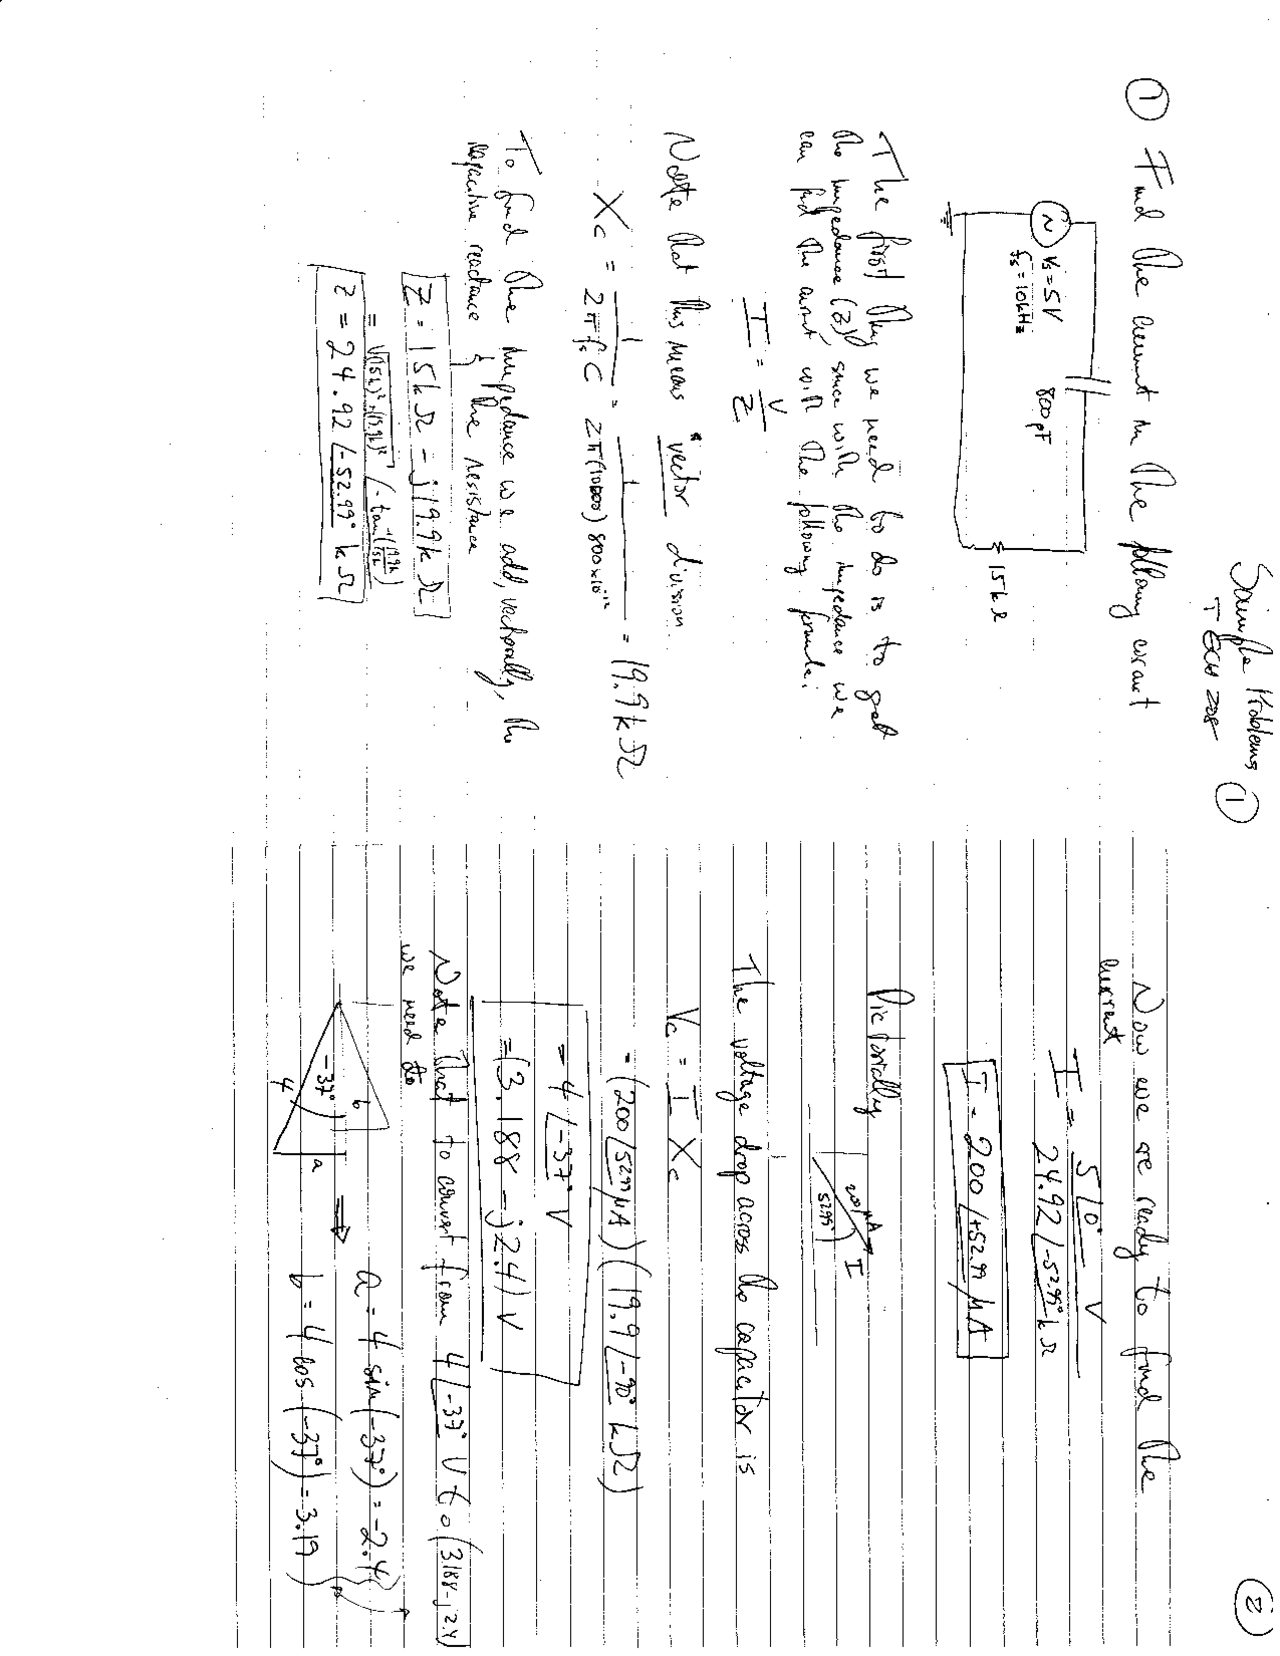 Sample Problems ①
TECH 208
① Find the current in the following circuit
Vs = 5V
fs = 10kHz
800pF
15kΩ
The first thing we need to do is to get
the impedance (Z), since with the impedance, we
can find the current with the following formula:
I = V/Z
Note that this means "vector division
Xc = 1/2πfsC = 1/2π(10000)800x10⁻¹² = 19.9kΩ
To find the impedance we add, vectorially, the
capacitive reactance & the resistance
Z = 15kΩ - j19.9kΩ
= √(15k)²+(19.9k)² /-tan⁻¹(19.9k/15k)
Z = 24.92 /-52.99° kΩ
②
Now we are ready to find the
current
I = 5/0° V / 24.92/-52.99° kΩ
I = 200 /+52.99 μA
Pictorially
200μA
52.99°
I
The voltage drop across the capacitor is
Vc = I Xc
= (200/52.99 μA)(19.9/-90° kΩ)
= 4 /-37° V
= (3.188 - j2.4) V
Note that to convert from 4/-37° V to (3.188-j2.4)
we need to
-37°
4
b
a
a = 4 sin(-37°) = -2.4
b = 4 cos(-37°) = 3.19